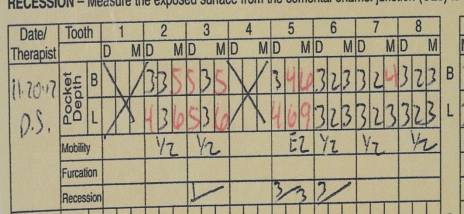 RECESSION – Measure the exposed surface from the
Date/ Tooth 1 2 3 4 5 6 7 8
Therapist D M D M D M D M D M D M D M D M
11.20.12 Pocket Depth B X 335 535 X 346 323 324 323 B
D.S. L 436 536 469 323 323 323 L
Mobility 1/2 1/2 E2 1/2 1/2 1/2
Furcation
Recession 1/ 3/3 3/